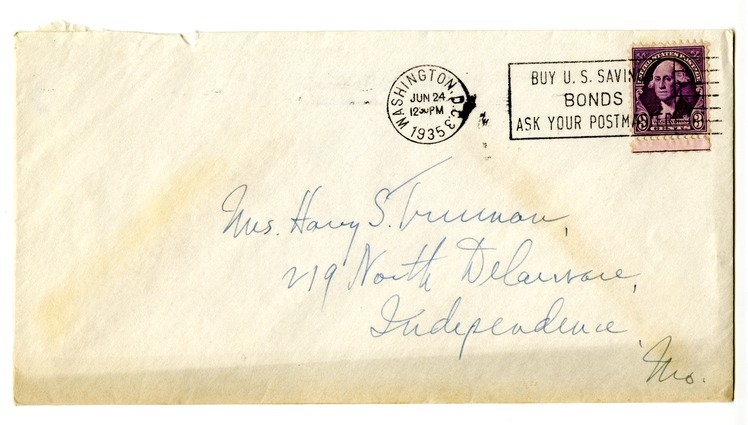 WASHINGTON, D.C. 3
JUN 24
12 30 PM
1935
BUY U.S. SAVIN
BONDS
ASK YOUR POSTMASTER
UNITED STATES POSTAGE
3 CENTS 3
Mrs. Harry S. Truman,
219 North Delaware,
Independence
Mo.